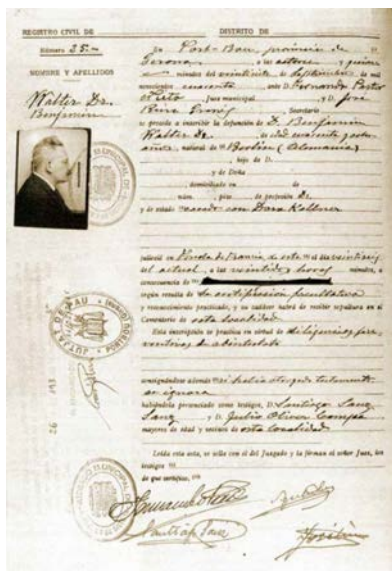 REGISTRO CIVIL DE
DISTRITO DE
Número 25.-
NOMBRE Y APELLIDOS
Walter Dr.
Benjamin
En Port-Bou provincia de
Gerona, a las catorce y quince
minutos del veintisiete de Septiembre de mil
novecientos cuarenta, ante D. Fernando Pastor
Nieto, Juez municipal y D. José
, Secretario
se procede a inscribir la defunción de D. Benjamin
Walter Dr. de edad cuarenta y ocho
años, natural de Berlin (Alemania)
, hijo de D.
y de Doña
, domiciliado en de
núm. , piso , de profesión Dr.
y de estado casado con Dora Kellner
falleció en Fonda de Francia de esta el día veintiseis
del actual, a las veintidós horas minutos, a
consecuencia de
según resulta de la certificación facultativa
y reconocimiento practicado, y su cadáver habrá de recibir sepultura en el
Cementerio de esta localidad
Esta inscripción se practica en virtud de diligencias pre-
ventivas de abintestato
consignándose además si había otorgado testamento
se ignora
habiéndola presenciado como testigos, D. Santiago Sanz
Sanz y D. Julio Oliver
mayores de edad y vecinos de esta localidad
Leída esta acta, se sella con el del Juzgado y la firman el señor Juez, los
testigos
de que certifico.